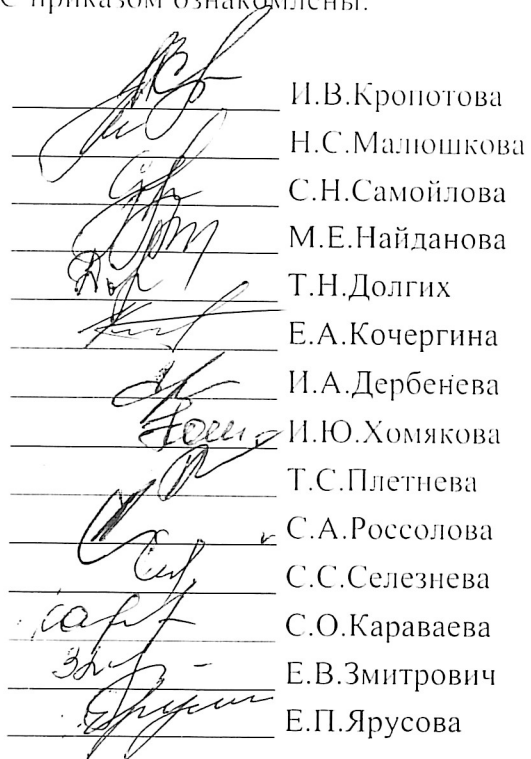 С приказом ознакомлены:
И.В.Кропотова
Н.С.Малюшкова
С.Н.Самойлова
М.Е.Найданова
Т.Н.Долгих
Е.А.Кочергина
И.А.Дербенева
И.Ю.Хомякова
Т.С.Плетнева
С.А.Россолова
С.С.Селезнева
С.О.Караваева
Е.В.Змитрович
Е.П.Ярусова